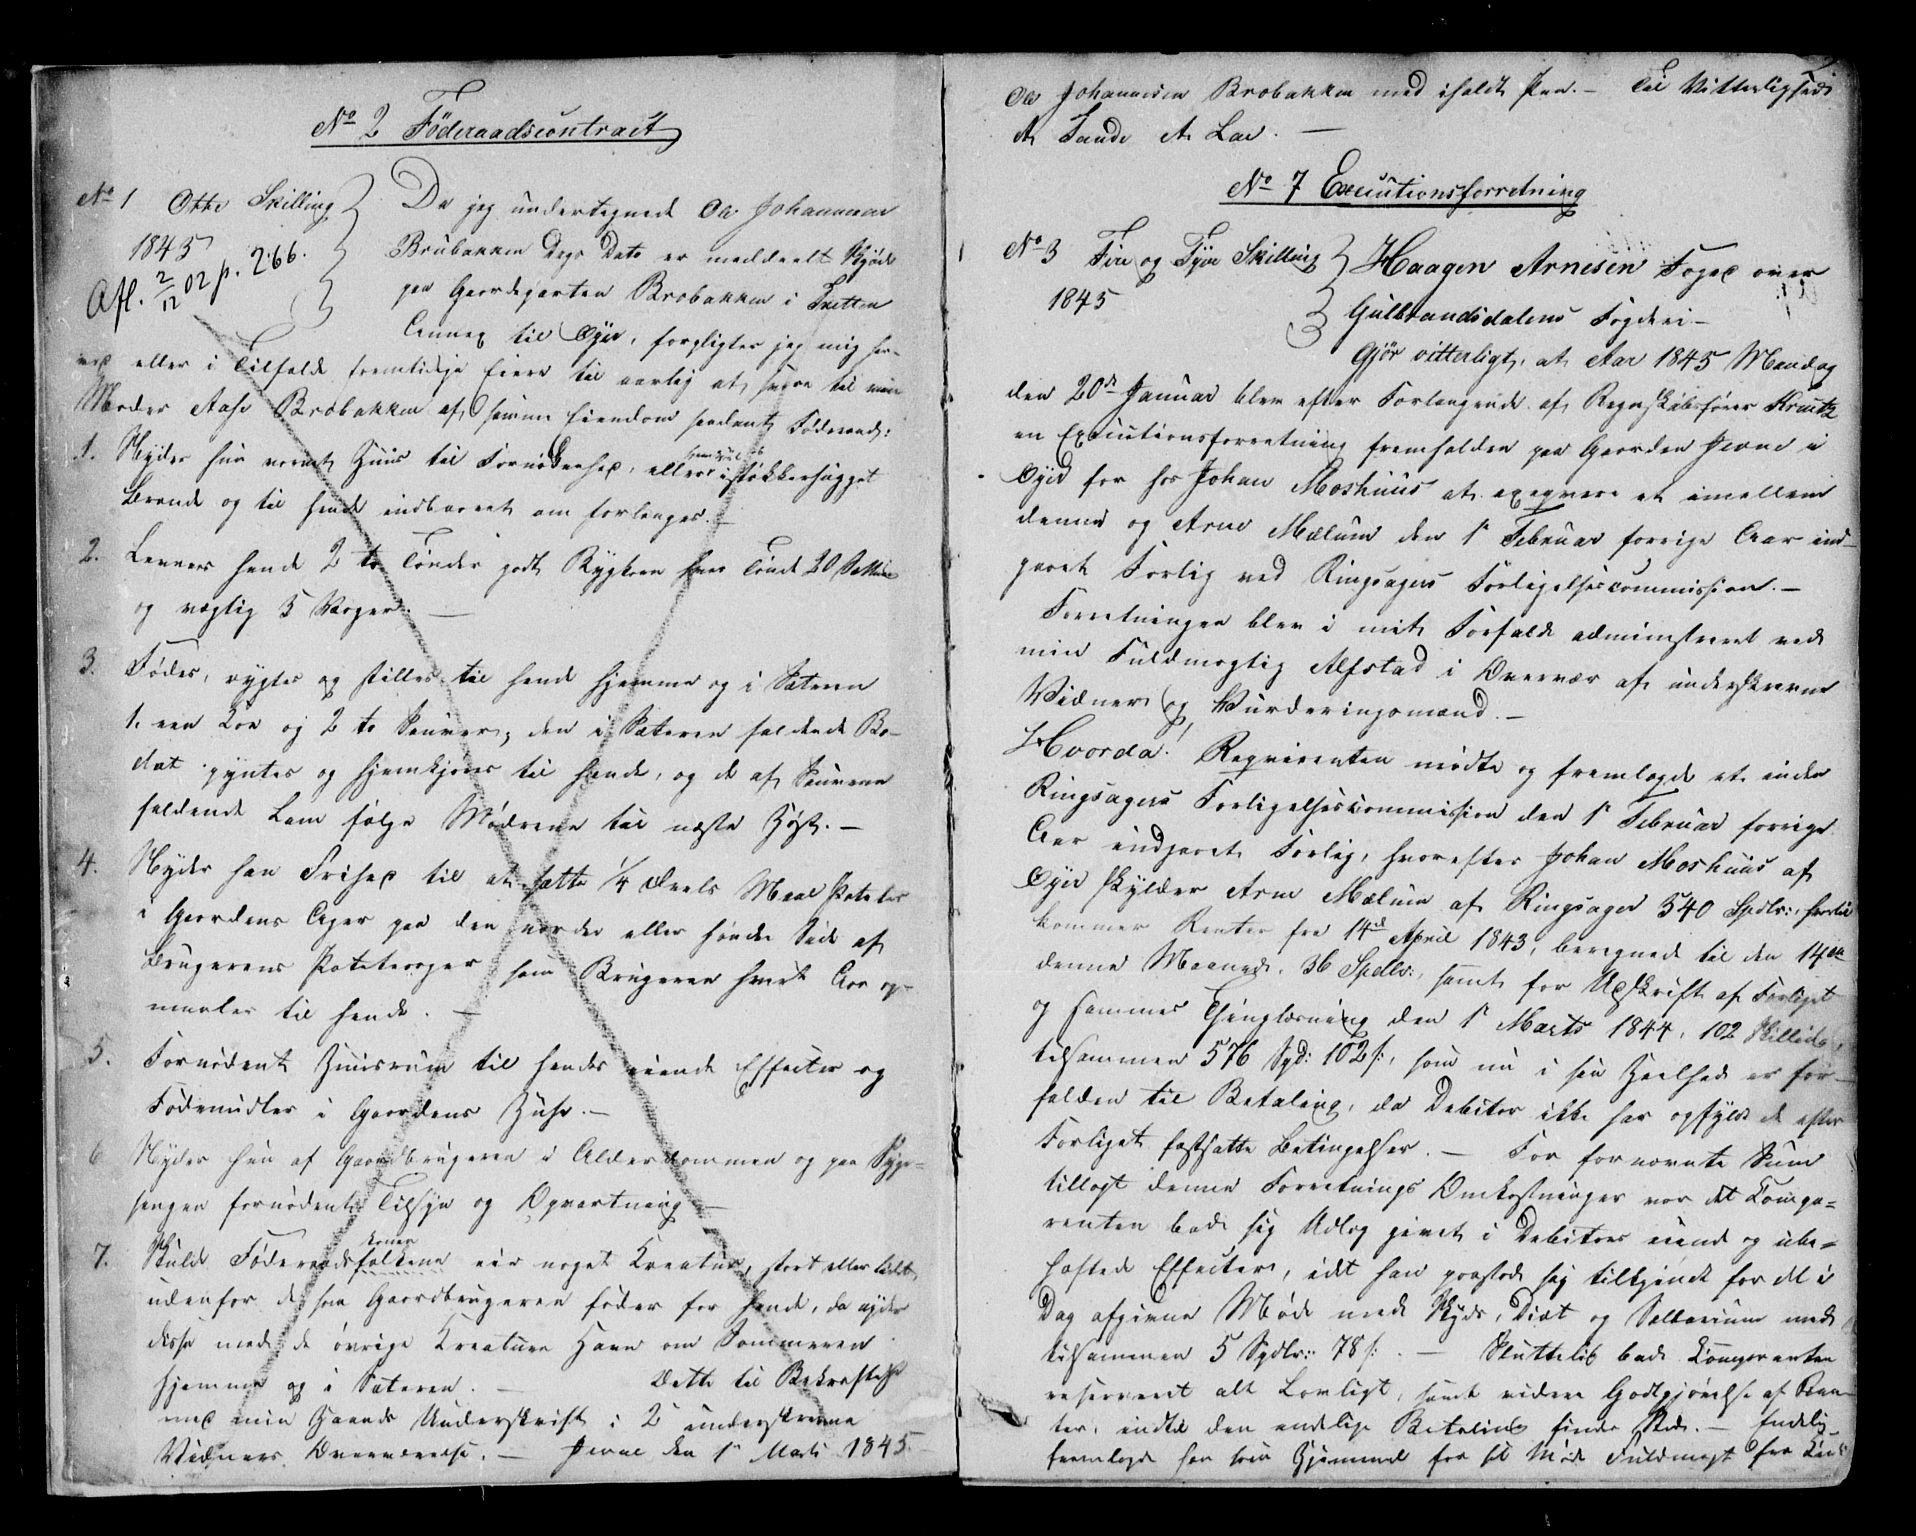 No 2 Föderaadscontract
No 1 Otte Skilling
1845
Afl. 2/12 02 p. 266.
Da jeg undertegnede Ole Johannesen
Brubakken Dags Dato er meddeelt Skjöde
paa Gaardeparten Brobakken i Tretten
Annex til Øyer, forpligter jeg mig her-
ved eller i Tilfælde fremtidige Eiere til aarlig at svare til min
Moder Aase Brobakken af samme Eiendom saadant Föderaad:
1. Nyder hun varmt Huus til Fornödenhed, eller istökkerhugget
Brænde og til hende indbaaret om forlanges. –
2. Leveres hende 2 to Tönder godt Bygkorn hver Tönde 20 Sætting
og vægtig 5 Voger. –
3. Födes, rygtes og stilles til hende hjemme og i Sæteren
1. een Koe og 2 to Sauer; den i Sæteren faldende Bo-
dræt pyntes og hjemkjöres til hende, og de af Sauerne
faldende Lam fölge Mödrene til næste Höst. –
4. Nyder hun Frihed til at sætte 1/4 Deels Maal Poteter
i Gaardens Ager paa den nordre eller söndre Side af
Brugerens Poteteager som Brugeren hvert Aar op-
maaler til hende. –
5. Fornödent Huusrum til hendes eiende Effecter og
Födemidler i Gaardens Huse. –
6 Nyder hun af Gaardbrugeren i Alderdommen og paa Syge-
sengen fornödent Tilsyn og Opvartning –
7. Skulde Föderaadsfolkene konen eie noget Kreatur, stort eller lidet,
udenfor de som Gaardbrugeren föder for hende, da nyder
disse med de övrige Kreature Havn om Sommeren
hjemme og i Sæteren. – Dette til Bekræftelse
med min Haands Underskrift i 2 underskrevne
Vidners Overværelse. – Jevne den 1ste Marti 1845.
Ole Johannesen Brobakken med iholdt Pen. – Til Vitterlighed:
A. Sande A. Lae. –
No 7 Executionsforretning
No 3 Fire og Tyve Skilling
1845
Haagen Arnesen Foged over
Gulbrandsdalens Fogderi –
Gjör vitterligt, at Aar 1845 Mandag
den 20de Januar blev efter Forlangende af Regnskabsförer Krantz
en Executionsforretning fremholden paa Gaarden Jevne i
Øyer for hos Johan Moshuus at exeqvere et imellem
denne og Arne Mælum den 1ste Februar forrige Aar ind-
gaaet Forlig ved Ringsagers Forligelsescommission. –
Forretningen blev i mit Forfald administreret ved
min Fuldmægtig Alfstad i Overvær af underskrevne
Vidner og Vurderingsmænd. –
Hvorda! Reqvirenten mödte og fremlagde et inden
Ringsagers Forligelsescommission den 1ste Februar forrige
Aar indgaaet Forlig, hvorefter Johan Moshuus af
Øyer skylder Arne Mælum af Ringsager 540 Spdlr:, hertil
kommer Renter fra 14de April 1843, beregnede til den 14de
denne Maaned, 36 Spdlr:, samt for Udskrift af Forliget
og sammes Thinglæsning den 1ste Marts 1844, 102 Skilling,
tilsammen 576 Spd: 102 s:, som nu i sin Heelhed er for-
falden til Betaling, da Debitor ikke har opfyldt de efter
Forliget fastsatte Betingelser. – For fornævnte Sum
tillagt denne Forretnings Omkostninger var det Compa-
renten bad sig Udlæg givet i Debitors eiende og ube-
hæftede Effecter, idet han paastod sig tilkjendt for det i
Dag afgivne Möde med Skyds, Diæt og Sallarium med
tilsammen 5 Spdlr: 78 s: – Sluttelig bad Comparenten
reserveret alt Lovligt, samt videre Godtgjörelse af Ren-
ter, indtil den endelige Betaling finder Sted. – Endelig
fremlagde han som Hjemmel for sit Möde Fuldmagt fra